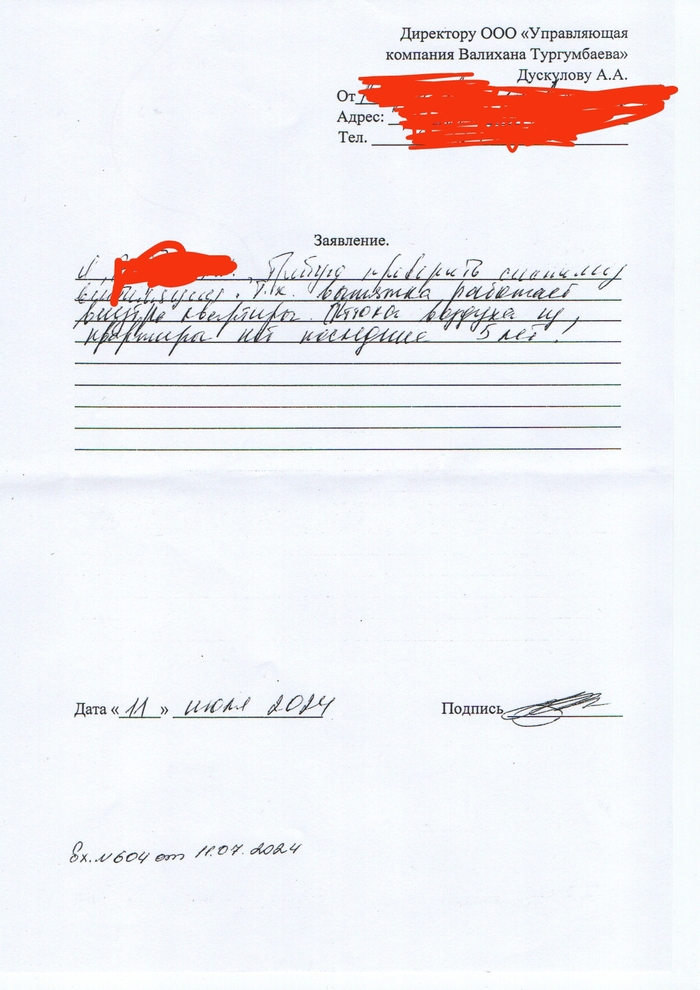 Директору ООО «Управляющая
компания Валихана Тургумбаева»
Дускулову А.А.
От
Адрес:
Тел.
Заявление.
Я, Требую проверить систему
вентиляции. Т.к. вытяжка работает
внутрь квартиры. Оттока воздуха из
квартиры нет последние 5 лет.
Дата «11» июля 2024 Подпись
Вх.№604 от 11.07.2024